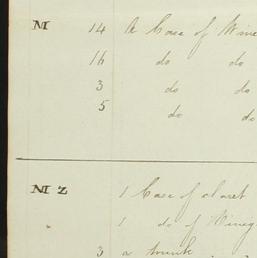 M 14 A Case of Wine
16 do do
3 do do
5 do do
M Z 1 Case of claret
1 do of Vineg
3 a trunk